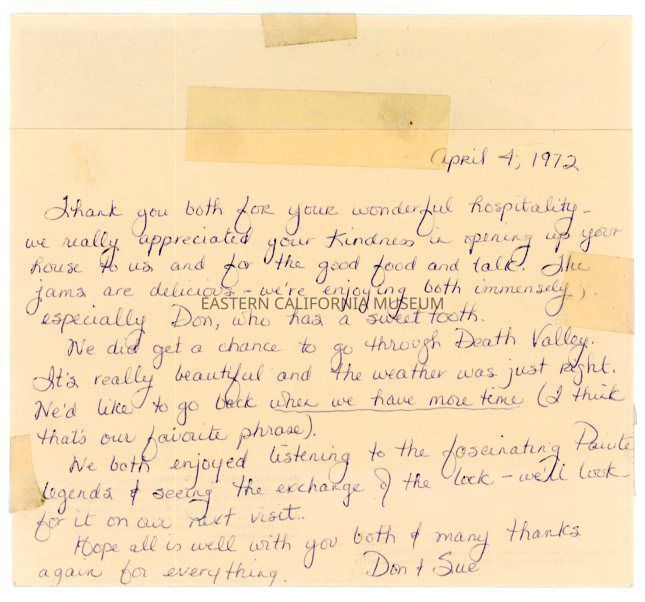 April 4, 1972
Thank you both for your wonderful hospitality -
we really appreciated your kindness in opening up your
house to us and for the good food and talk. The
jams are delicious - we're enjoying both immensely,
EASTERN CALIFORNIA MUSEUM
especially Don, who has a sweet tooth.
We did get a chance to go through Death Valley.
It's really beautiful and the weather was just right.
We'd like to go back when we have more time (I think
that's our favorite phrase).
We both enjoyed listening to the fascinating Paiute
legends & seeing the exchange of the lock - we'll look
for it on our next visit.
Hope all is well with you both & many thanks
again for everything. Don & Sue